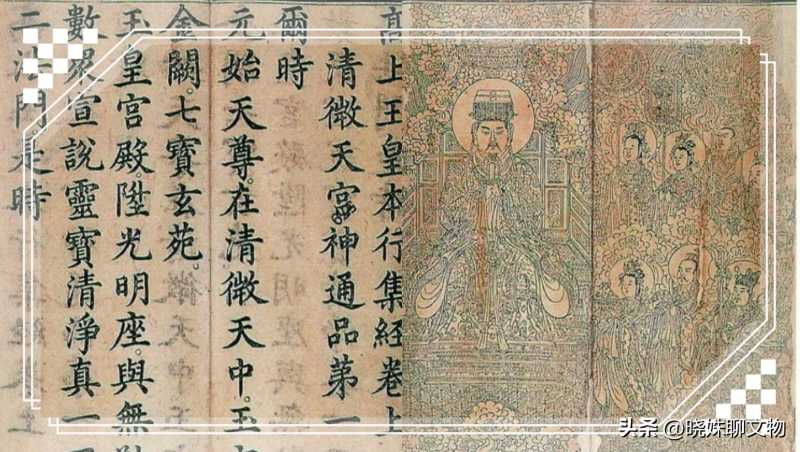 高上玉皇本行集經卷上
清微天宮神通品第一
爾時
元始天尊。在清微天中。玉
金闕。七寶玄苑。
玉皇宮殿。陞光明座。與無
數衆宣說靈寶清淨真一
二法門。是時
头条 @晓妹聊文物